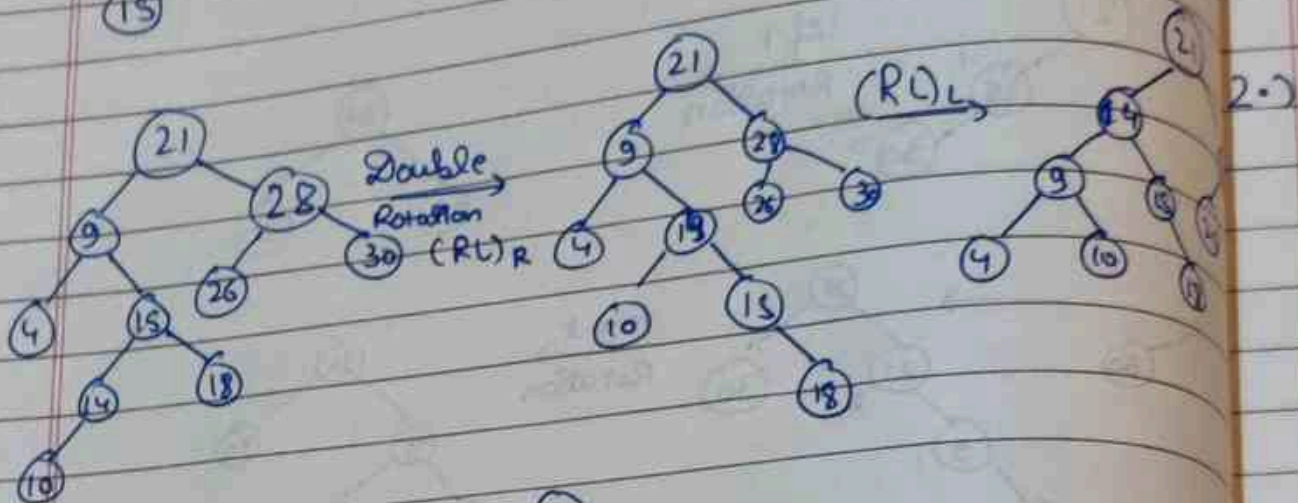 15
21
9
28
4
15
26
30
14
18
10
Double
Rotation
(RL)R
21
9
28
4
26
30
10
15
18
(RL)L
21
14
9
15
4
10
18
2.)